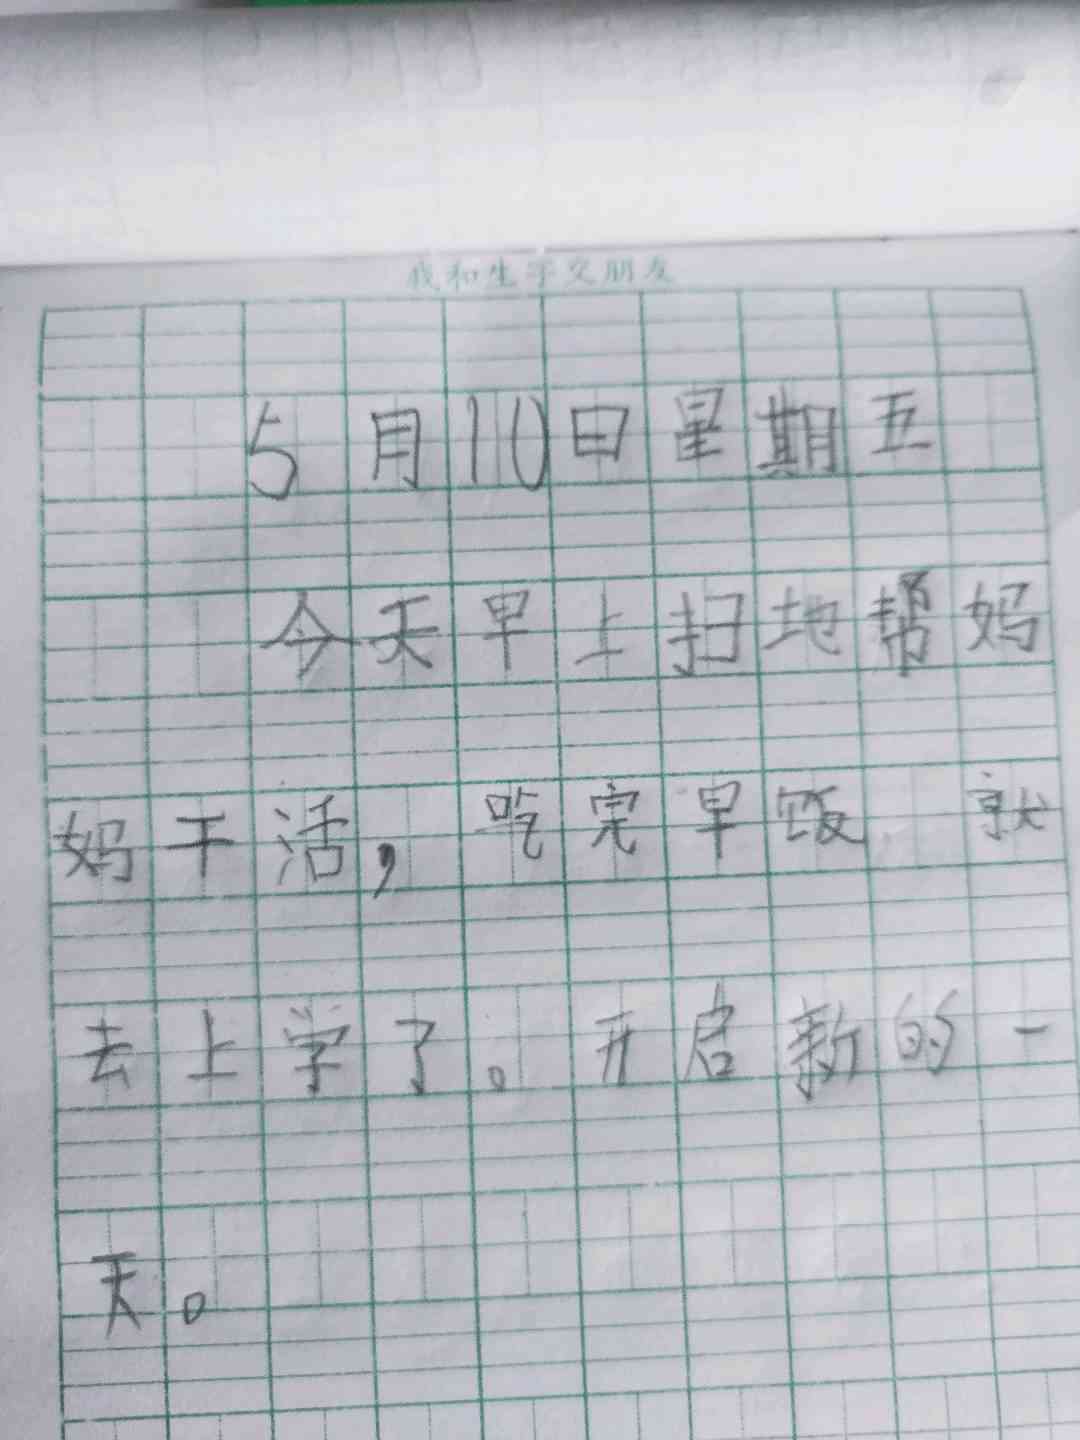 我和生字交朋友
5月10日星期五
今天早上扫地帮妈
妈干活，吃完早饭 就
去上学了。开启新的一
天。